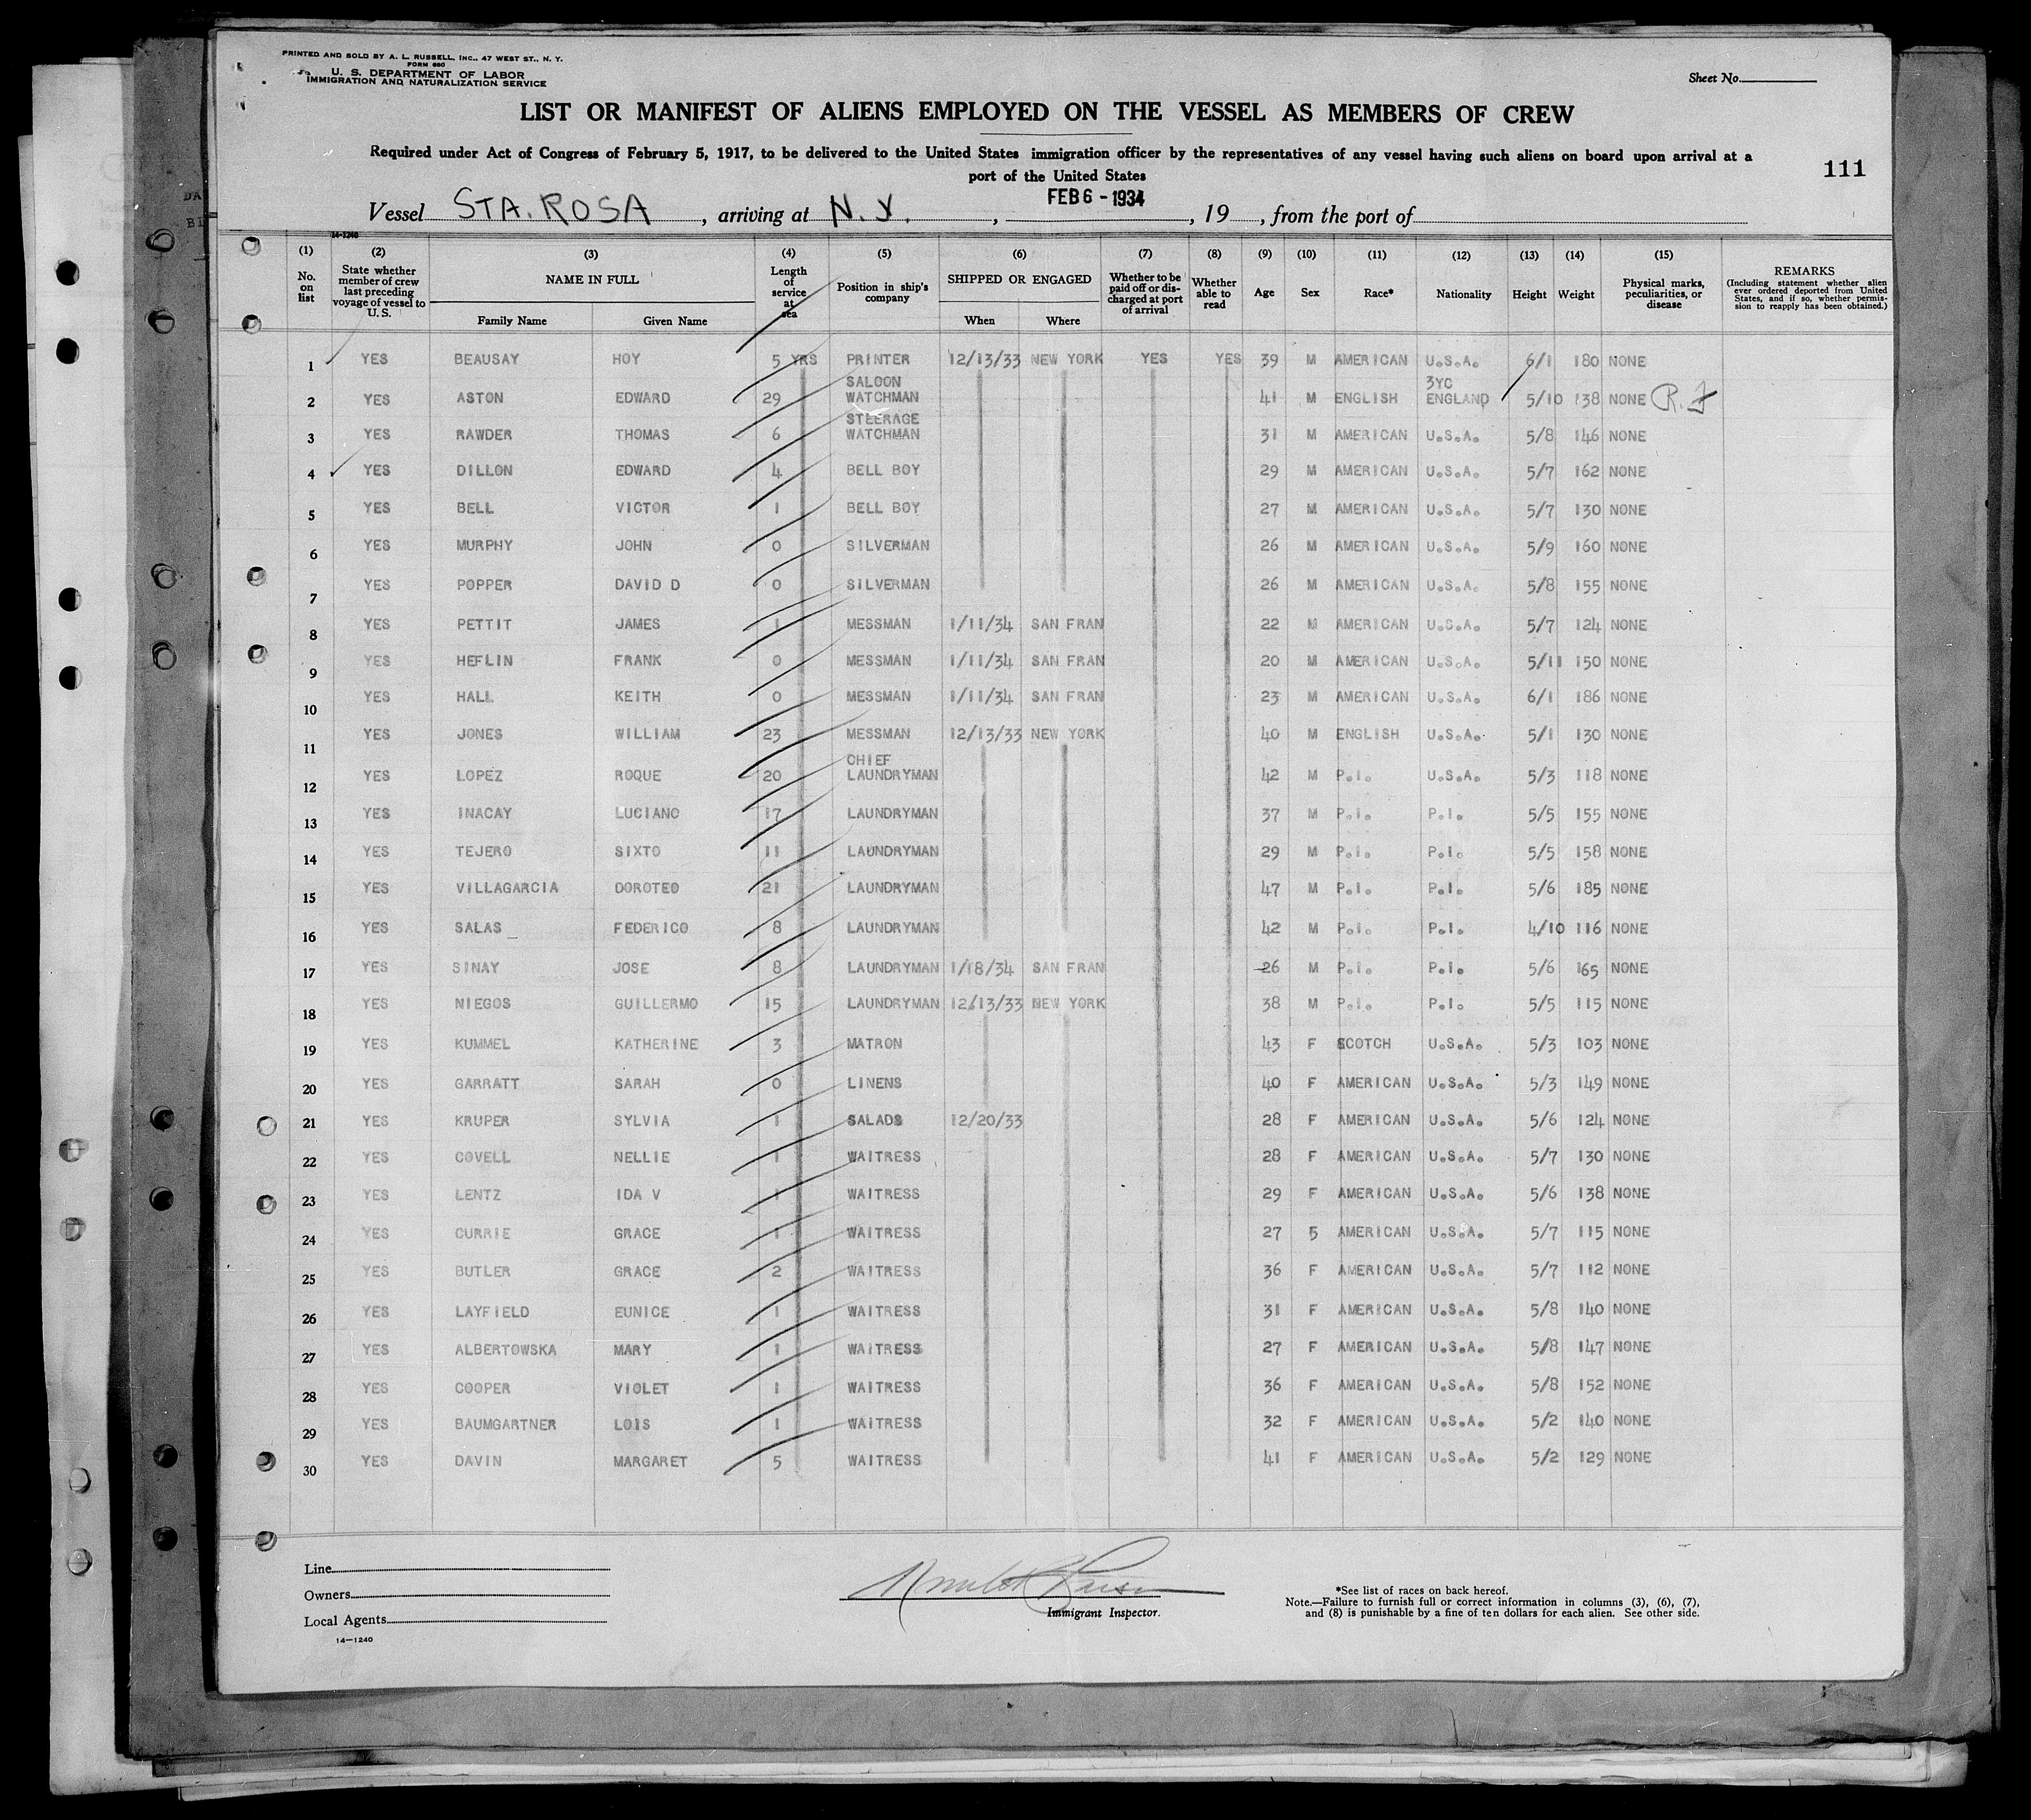 PRINTED AND SOLD BY A. L. RUSSELL, INC., 47 WEST ST., N. Y.
FORM 680
U. S. DEPARTMENT OF LABOR
IMMIGRATION AND NATURALIZATION SERVICE
Sheet No.
LIST OR MANIFEST OF ALIENS EMPLOYED ON THE VESSEL AS MEMBERS OF CREW
Required under Act of Congress of February 5, 1917, to be delivered to the United States immigration officer by the representatives of any vessel having such aliens on board upon arrival at a
port of the United States
111
Vessel STA. ROSA, arriving at N.Y., FEB 6 - 1934, 19, from the port of
14-1240
(1) (2) (3) (4) (5) (6) (7) (8) (9) (10) (11) (12) (13) (14) (15)
No. on list
State whether member of crew last preceding voyage of vessel to U. S.
NAME IN FULL
Family Name Given Name
Length of service at sea
Position in ship's company
SHIPPED OR ENGAGED
When Where
Whether to be paid off or discharged at port of arrival
Whether able to read
Age Sex Race* Nationality Height Weight
Physical marks, peculiarities, or disease
REMARKS
(Including statement whether alien ever ordered deported from United States, and if so, whether permission to reapply has been obtained.)
1 YES BEAUSAY HOY 5 YRS PRINTER 12/13/33 NEW YORK YES YES 39 M AMERICAN U.S.A. 6/1 180 NONE
2 YES ASTON EDWARD 29 SALOON WATCHMAN 41 M ENGLISH 3YC ENGLAND 5/10 138 NONE
3 YES RAWDER THOMAS 6 STEERAGE WATCHMAN 31 M AMERICAN U.S.A. 5/8 146 NONE
4 YES DILLON EDWARD 4 BELL BOY 29 M AMERICAN U.S.A. 5/7 162 NONE
5 YES BELL VICTOR 1 BELL BOY 27 M AMERICAN U.S.A. 5/7 130 NONE
6 YES MURPHY JOHN 0 SILVERMAN 26 M AMERICAN U.S.A. 5/9 160 NONE
7 YES POPPER DAVID D 0 SILVERMAN 26 M AMERICAN U.S.A. 5/8 155 NONE
8 YES PETTIT JAMES 1 MESSMAN 1/11/34 SAN FRAN 22 M AMERICAN U.S.A. 5/7 124 NONE
9 YES HEFLIN FRANK 0 MESSMAN 1/11/34 SAN FRAN 20 M AMERICAN U.S.A. 5/11 150 NONE
10 YES HALL KEITH 0 MESSMAN 1/11/34 SAN FRAN 23 M AMERICAN U.S.A. 6/1 186 NONE
11 YES JONES WILLIAM 23 MESSMAN 12/13/33 NEW YORK 40 M ENGLISH U.S.A. 5/1 130 NONE
12 YES LOPEZ ROQUE 20 CHIEF LAUNDRYMAN 42 M P.I. U.S.A. 5/3 118 NONE
13 YES INACAY LUCIANO 17 LAUNDRYMAN 37 M P.I. P.I. 5/5 155 NONE
14 YES TEJERO SIXTO 11 LAUNDRYMAN 29 M P.I. P.I. 5/5 158 NONE
15 YES VILLAGARCIA DOROTEO 21 LAUNDRYMAN 47 M P.I. P.I. 5/6 185 NONE
16 YES SALAS FEDERICO 8 LAUNDRYMAN 42 M P.I. P.I. 4/10 116 NONE
17 YES SINAY JOSE 8 LAUNDRYMAN 1/18/34 SAN FRAN 26 M P.I. P.I. 5/6 165 NONE
18 YES NIEGOS GUILLERMO 15 LAUNDRYMAN 12/13/33 NEW YORK 38 M P.I. P.I. 5/5 115 NONE
19 YES KUMMEL KATHERINE 3 MATRON 43 F SCOTCH U.S.A. 5/3 103 NONE
20 YES GARRATT SARAH 0 LINENS 40 F AMERICAN U.S.A. 5/3 149 NONE
21 YES KRUPER SYLVIA 1 SALADS 12/20/33 28 F AMERICAN U.S.A. 5/6 124 NONE
22 YES COVELL NELLIE 1 WAITRESS 28 F AMERICAN U.S.A. 5/7 130 NONE
23 YES LENTZ IDA V 1 WAITRESS 29 F AMERICAN U.S.A. 5/6 138 NONE
24 YES CURRIE GRACE 1 WAITRESS 27 5 AMERICAN U.S.A. 5/7 115 NONE
25 YES BUTLER GRACE 2 WAITRESS 36 F AMERICAN U.S.A. 5/7 112 NONE
26 YES LAYFIELD EUNICE 1 WAITRESS 31 F AMERICAN U.S.A. 5/8 140 NONE
27 YES ALBERTOWSKA MARY 1 WAITRESS 27 F AMERICAN U.S.A. 5/8 147 NONE
28 YES COOPER VIOLET 1 WAITRESS 36 F AMERICAN U.S.A. 5/8 152 NONE
29 YES BAUMGARTNER LOIS 1 WAITRESS 32 F AMERICAN U.S.A. 5/2 140 NONE
30 YES DAVIN MARGARET 5 WAITRESS 41 F AMERICAN U.S.A. 5/2 129 NONE
Line
Owners
Local Agents
14-1240
Immigrant Inspector.
*See list of races on back hereof.
Note.—Failure to furnish full or correct information in columns (3), (6), (7),
and (8) is punishable by a fine of ten dollars for each alien. See other side.